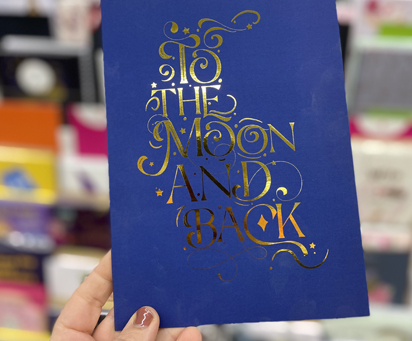 TO
THE
MOON
AND
BACK